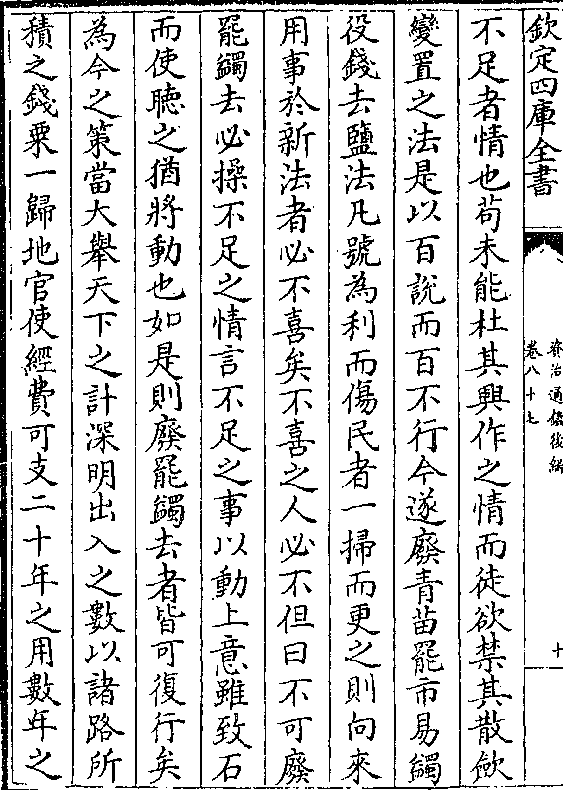 欽定四庫全書
資治通鑑後編
卷八十七
十
不足者情也苟未能杜其興作之情而徒欲禁其散歛
變置之法是以百說而百不行今遂廢青苗罷市易蠲
役錢去鹽法凡號為利而傷民者一掃而更之則向來
用事於新法者必不喜矣不喜之人必不但曰不可廢
罷蠲去必操不足之情言不足之事以動上意雖致石
而使聽之猶將動也如是則廢罷蠲去者皆可復行矣
為今之策當大舉天下之計深明出入之數以諸路所
積之錢粟一歸地官使經費可支二十年之用數年之